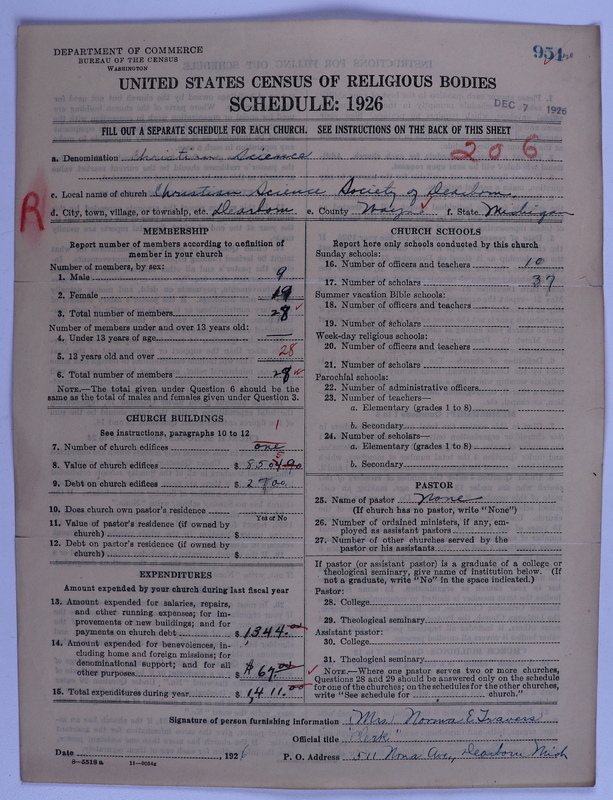 DEPARTMENT OF COMMERCE
BUREAU OF THE CENSUS
WASHINGTON
951
UNITED STATES CENSUS OF RELIGIOUS BODIES
SCHEDULE: 1926
DEC 7 1926
FILL OUT A SEPARATE SCHEDULE FOR EACH CHURCH. SEE INSTRUCTIONS ON THE BACK OF THIS SHEET
a. Denomination Christian Science
206
c. Local name of church Christian Science Society of Dearborn
R
d. City, town, village, or township, etc. Dearborn e. County Wayne f. State Michigan
MEMBERSHIP
Report number of members according to definition of
member in your church
Number of members, by sex:
1. Male 9
2. Female 19
3. Total number of members 28
Number of members under and over 13 years old:
4. Under 13 years of age
5. 13 years old and over 28
6. Total number of members 28
NOTE.—The total given under Question 6 should be the
same as the total of males and females given under Question 3.
CHURCH BUILDINGS
See instructions, paragraphs 10 to 12
1
7. Number of church edifices one
8. Value of church edifices $
9. Debt on church edifices $
10. Does church own pastor's residence
Yes or No
11. Value of pastor's residence (if owned by
church) $
12. Debt on pastor's residence (if owned by
church) $
EXPENDITURES
Amount expended by your church during last fiscal year
13. Amount expended for salaries, repairs,
and other running expenses; for im-
provements or new buildings; and for
payments on church debt $ 1344.00
14. Amount expended for benevolences, in-
cluding home and foreign missions; for
denominational support; and for all
other purposes $ 67.00
15. Total expenditures during year $ 1,411.00
CHURCH SCHOOLS
Report here only schools conducted by this church
Sunday schools:
16. Number of officers and teachers 10
17. Number of scholars 37
Summer vacation Bible schools:
18. Number of officers and teachers
19. Number of scholars
Week-day religious schools:
20. Number of officers and teachers
21. Number of scholars
Parochial schools:
22. Number of administrative officers
23. Number of teachers—
a. Elementary (grades 1 to 8)
b. Secondary
24. Number of scholars—
a. Elementary (grades 1 to 8)
b. Secondary
PASTOR
25. Name of pastor None
(If church has no pastor, write "None")
26. Number of ordained ministers, if any, em-
ployed as assistant pastors
27. Number of other churches served by the
pastor or his assistants
If pastor (or assistant pastor) is a graduate of a college or
theological seminary, give name of institution below. (If
not a graduate, write "No" in the space indicated.)
Pastor:
28. College
29. Theological seminary
Assistant pastor:
30. College
31. Theological seminary
NOTE.—Where one pastor serves two or more churches,
Questions 28 and 29 should be answered only on the schedule
for one of the churches; on the schedules for the other churches,
write "See schedule for church."
Signature of person furnishing information Mrs. Norma E. Travers
Official title "Clerk"
Date , 1926 P. O. Address 511 Nona Ave., Dearborn Mich
8-5518a 11-9054z